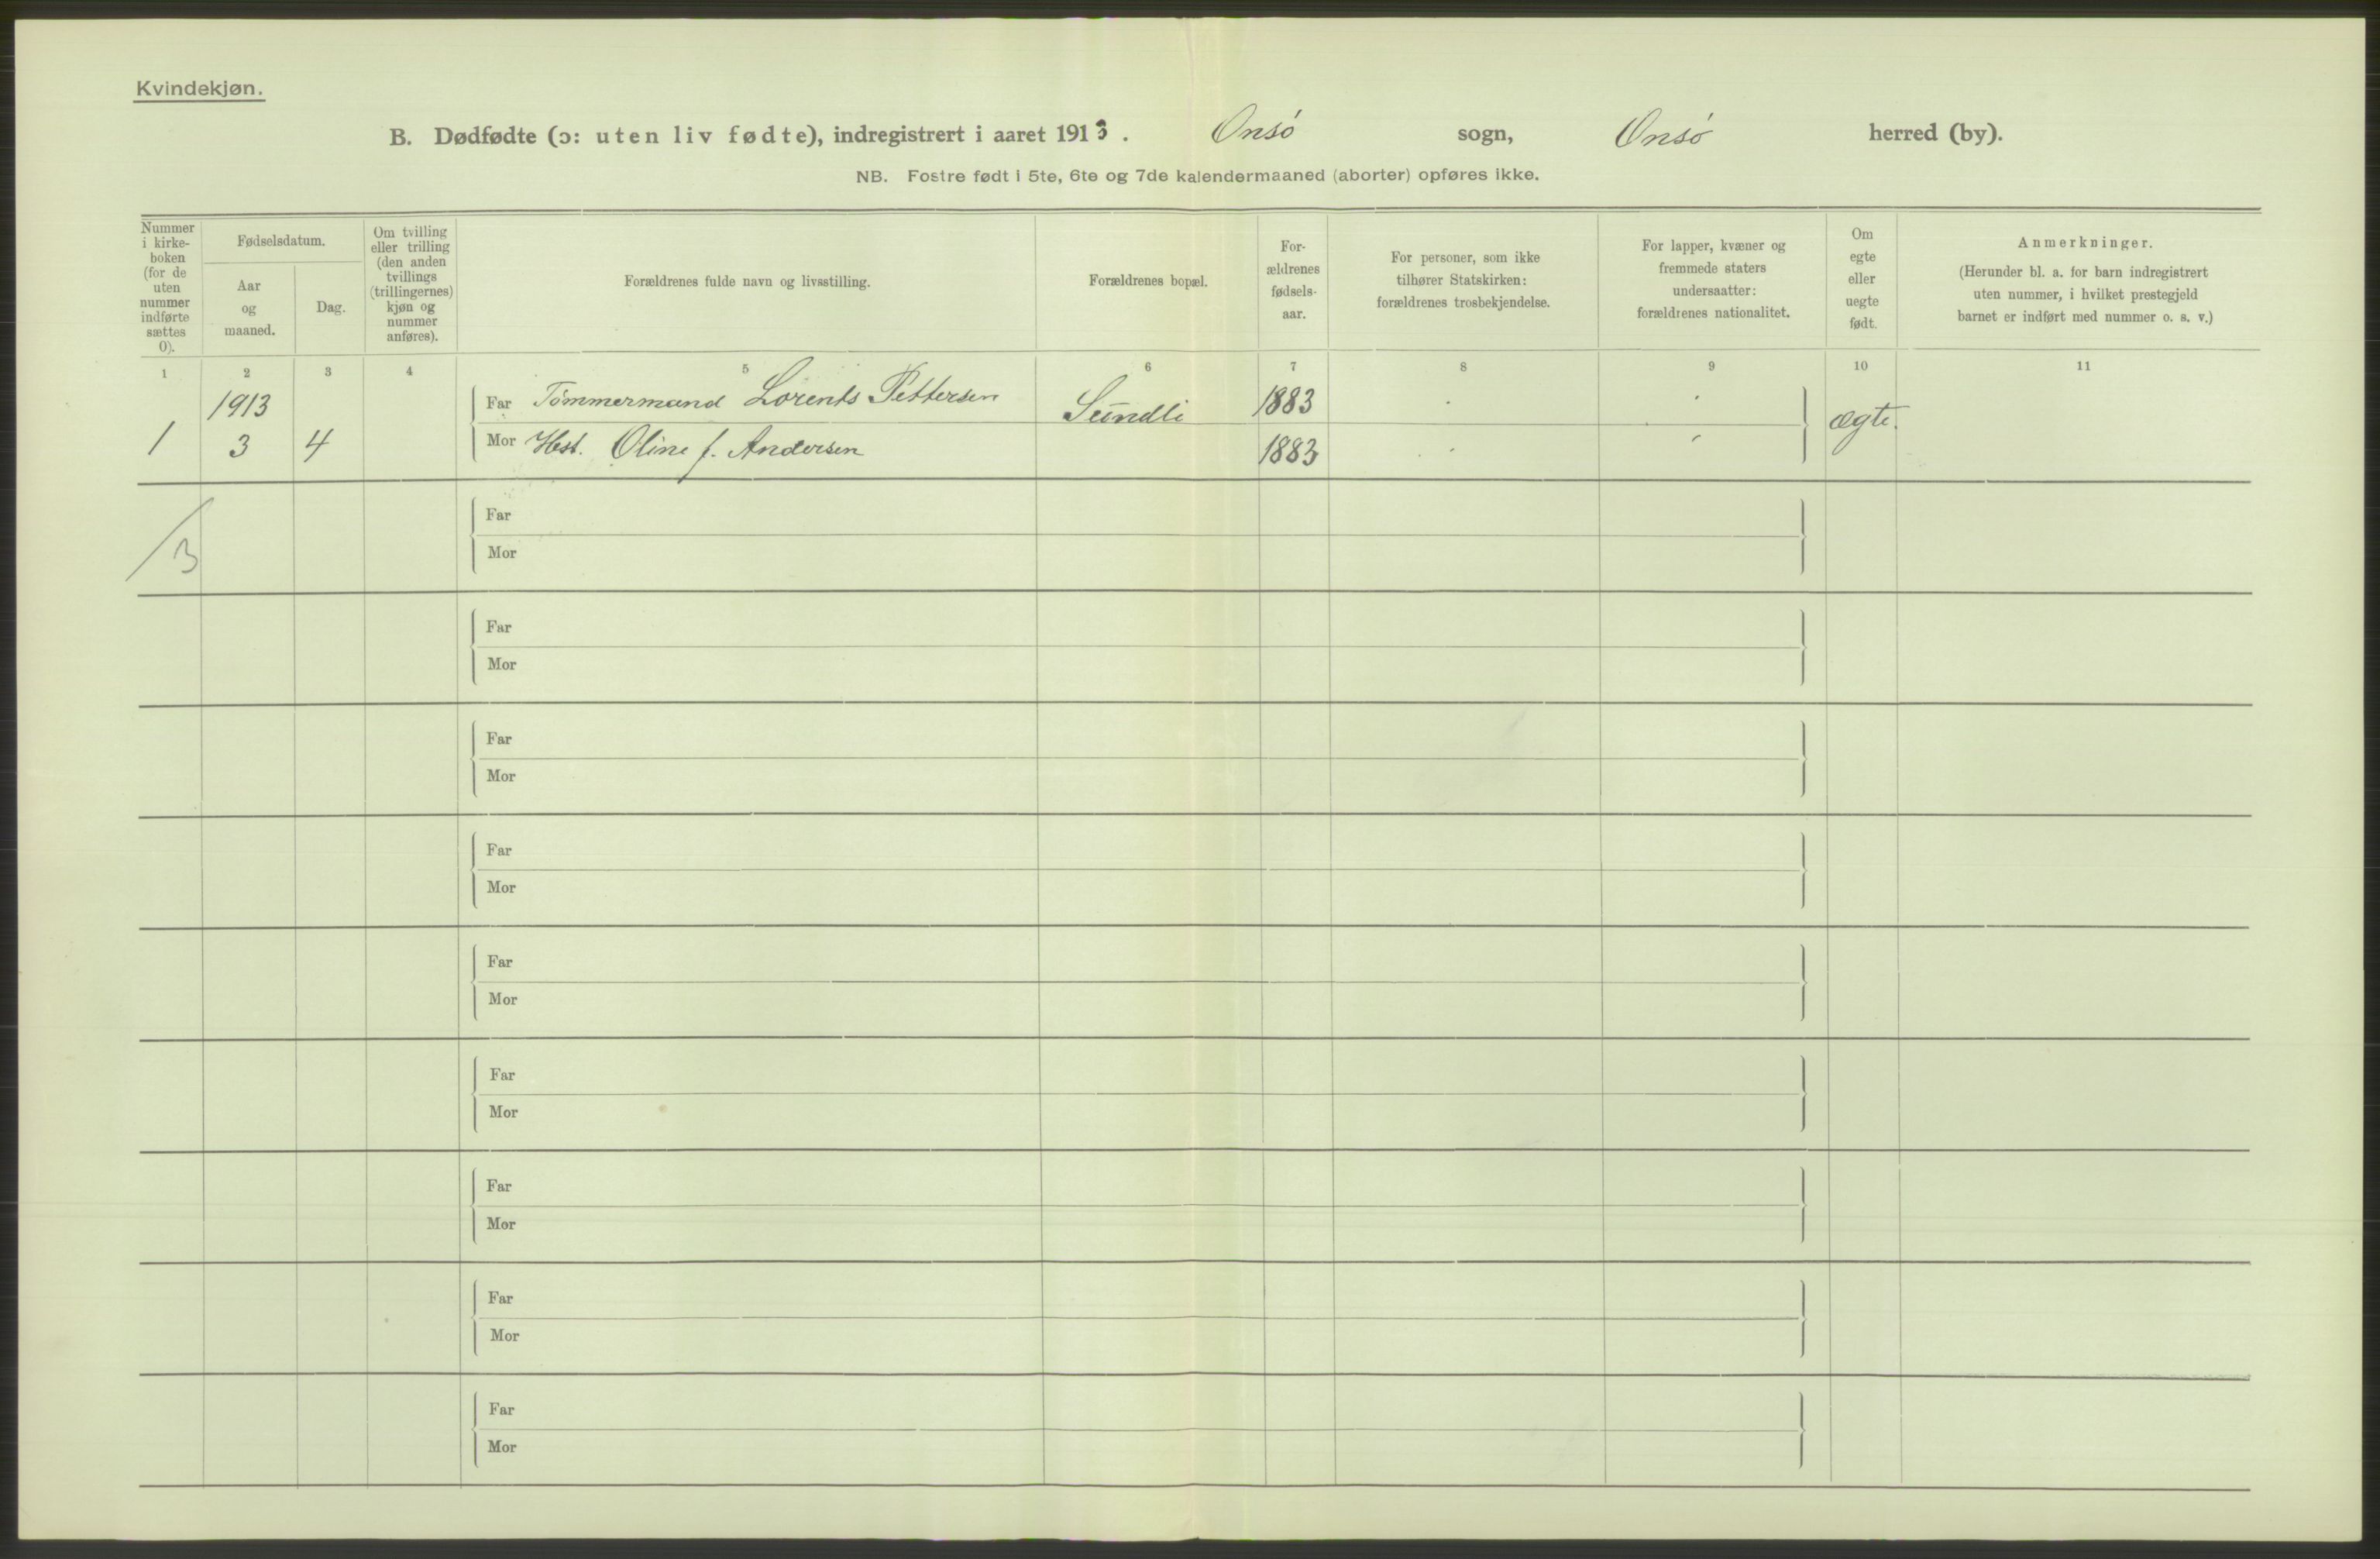 Kvindekjøn.
B. Dødfødte (ɔ: uten liv fødte), indregistrert i aaret 1913. Onsö sogn, Onsö herred (by).
NB. Fostre født i 5te, 6te og 7de kalendermaaned (aborter) opføres ikke.
Nummer i kirke- boken (for de uten nummer indførte sættes 0).
Fødselsdatum.
Aar og maaned.
Dag.
Om tvilling eller trilling (den anden tvillings (trillingernes) kjøn og nummer anføres).
Forældrenes fulde navn og livsstilling.
Forældrenes bopæl.
For- ældrenes fødsels- aar.
For personer, som ikke tilhører Statskirken: forældrenes trosbekjendelse.
For lapper, kvæner og fremmede staters undersaatter: forældrenes nationalitet.
Om egte eller uegte født.
Anmerkninger.
(Herunder bl. a. for barn indregistrert uten nummer, i hvilket prestegjeld barnet er indført med nummer o. s. v.)
1 2 3 4 5 6 7 8 9 10 11
1913 Far Tömmermand Lorents Pettersen Sundli 1883 ægte.
1 3 4 Mor Hust. Oline f. Andersen 1883
Far
/3 Mor
Far
Mor
Far
Mor
Far
Mor
Far
Mor
Far
Mor
Far
Mor
Far
Mor
Far
Mor